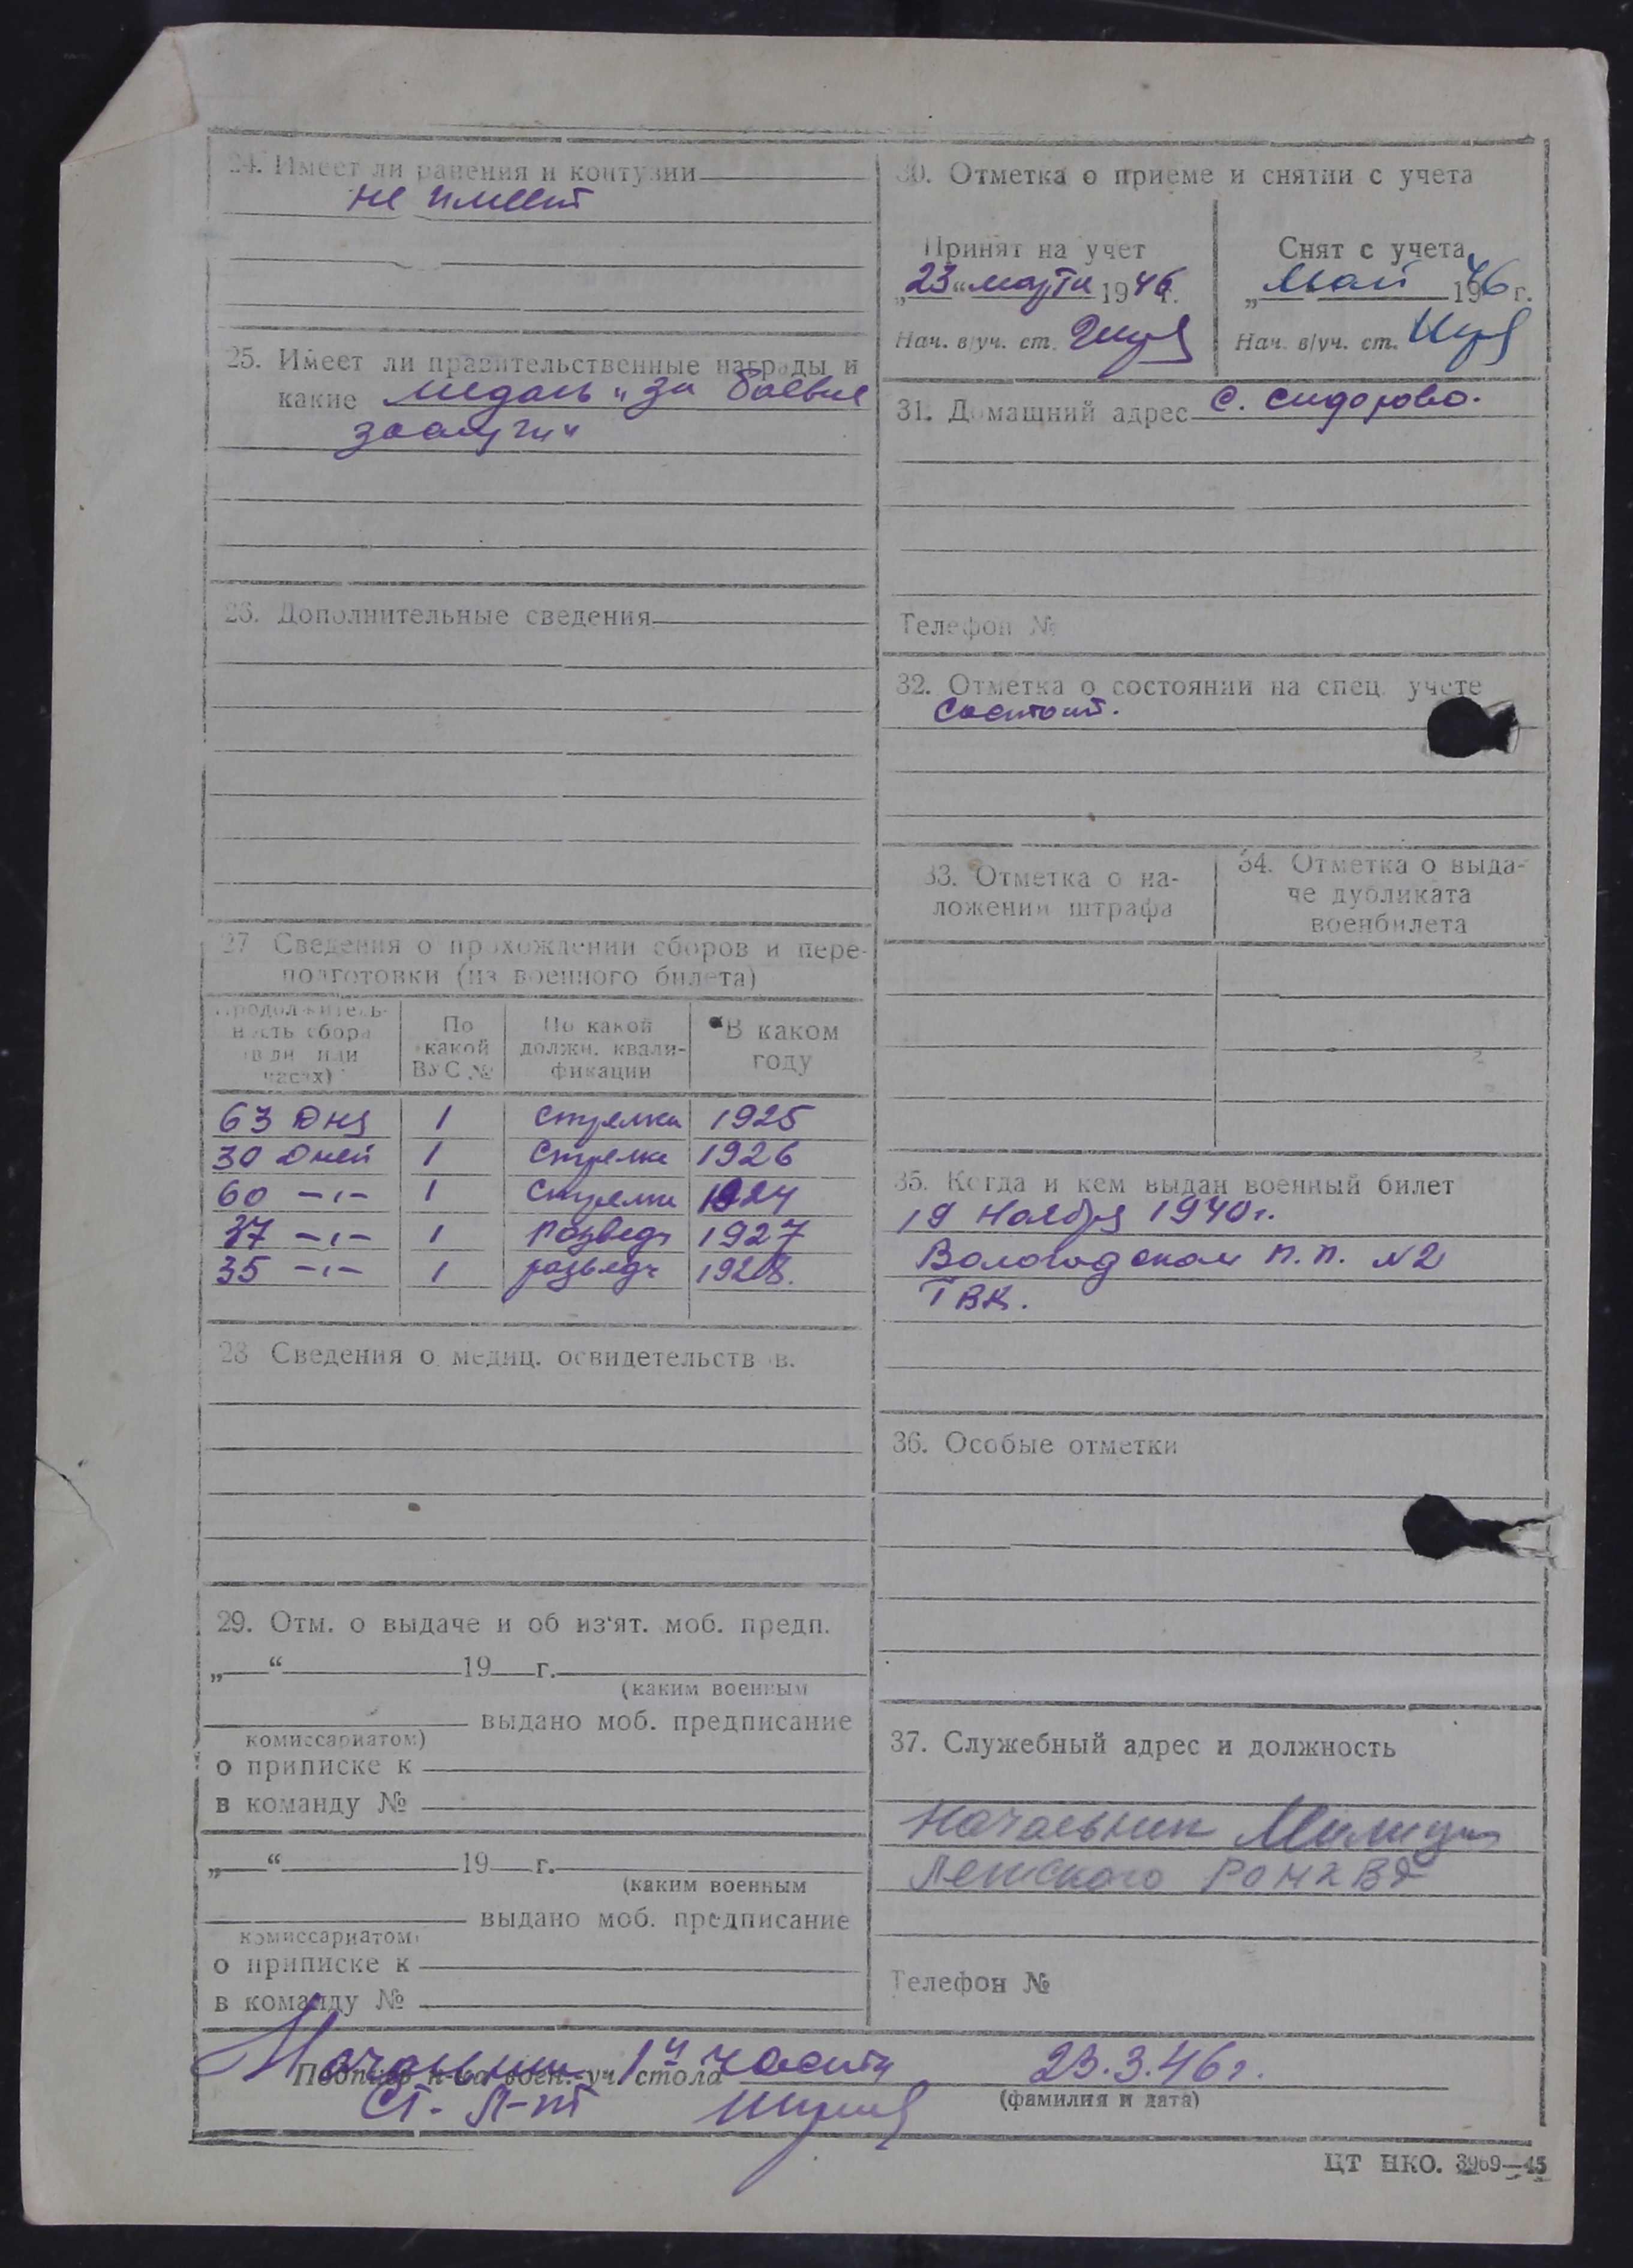 24. Имеет ли ранения и контузии
не имеет
25. Имеет ли правительственные награды и
какие медаль „за боевые
заслуги“
26. Дополнительные сведения
27 Сведения о прохождении сборов и пере-
подготовки (из военного билета)
Продолжитель-
ность сбора
(в дн или
часах)
По
какой
ВУС №
По какой
должн. квали-
фикации
В каком
году
63 дня 1 стрелка 1925
30 дней 1 стрелка 1926
60 -"- 1 стрелка 1924
37 -"- 1 разведч 1927
35 -"- 1 разведч 1928.
28 Сведения о медиц. освидетельств в.
29. Отм. о выдаче и об из'ят. моб. предп.
„ “ 19 г.
(каким военным
выдано моб. предписание
комиссариатом)
о приписке к
в команду №
„ “ 19 г.
(каким военным
выдано моб. предписание
комиссариатом)
о приписке к
в команду №
30. Отметка о приеме и снятии с учета
Принят на учет
„23“ марта 1946 г.
Нач. в/уч. ст.
Снят с учета
„ Май 1946 г.
Нач. в/уч. ст.
31. Домашний адрес с. Сидорово.
Телефон №
32. Отметка о состоянии на спец. учете
Состоит.
33. Отметка о на-
ложении штрафа
34. Отметка о выда-
че дубликата
военбилета
35. Когда и кем выдан военный билет
19 ноября 1940 г.
Вологодском п.п. №2
ГВК.
36. Особые отметки
37. Служебный адрес и должность
Начальник Милиции
Лежского РО НКВД
Телефон №
Начальник 1й части 23.3.46 г.
Подпись н-ка воен.-уч. стола
Ст. Л-нт
(фамилия и дата)
ЦТ НКО. 3969—45